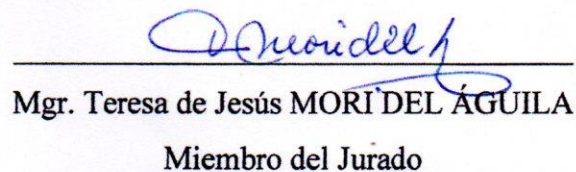 Mgr. Teresa de Jesús MORI DEL ÁGUILA
Miembro del Jurado